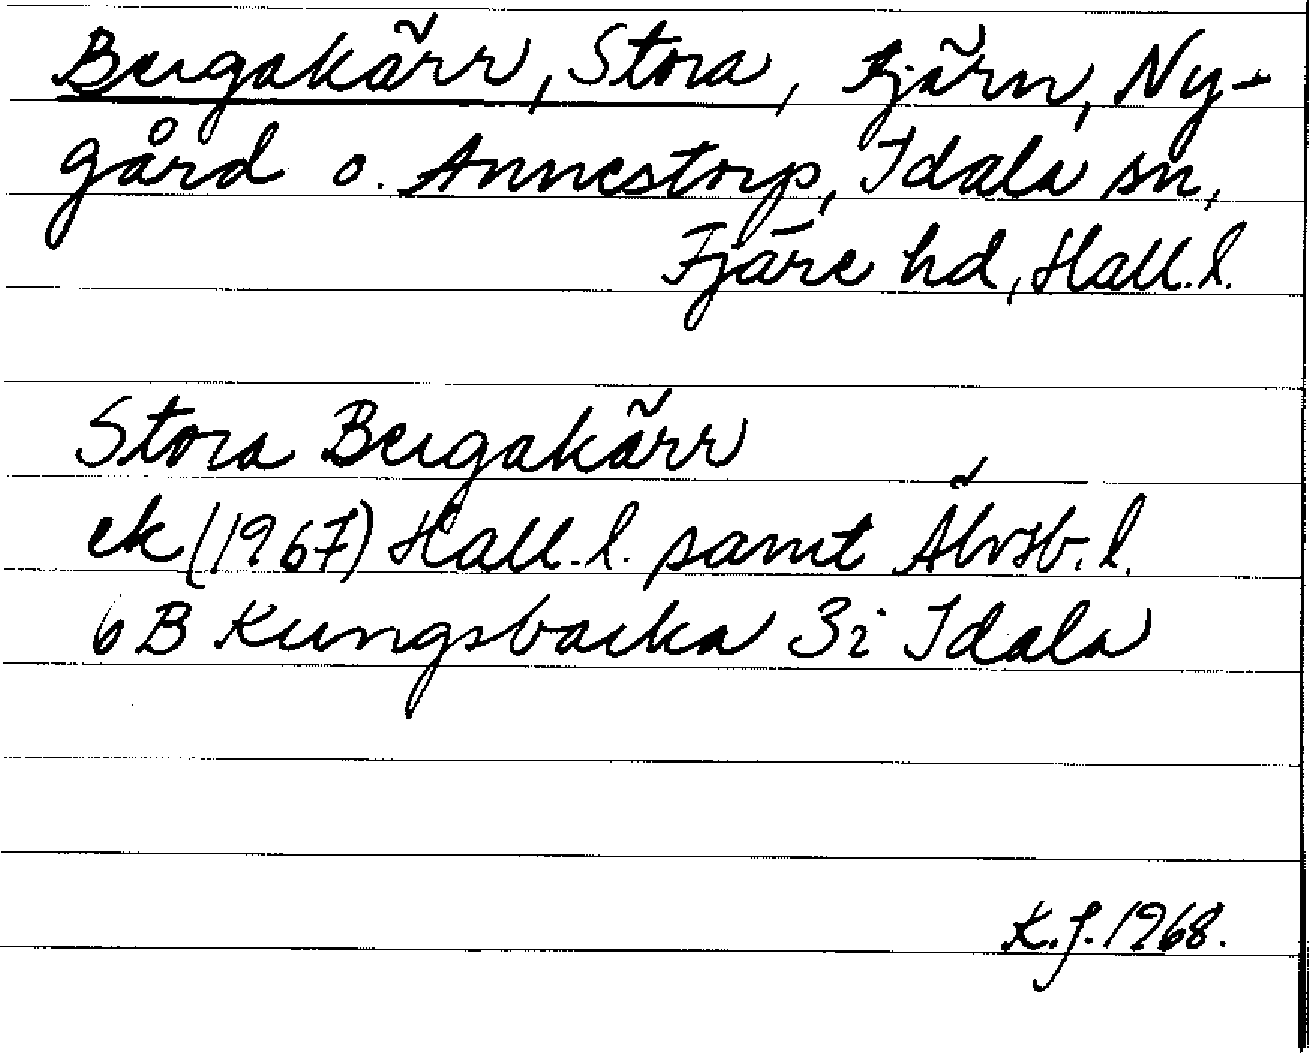 Bergakärr, Stora, tjärn, Ny-
gård o. Annestorp, Idala sn,
Fjäre hd, Hall. l.
Stora Bergakärr
ek (1967) Hall. l. samt Älvsb. l.
6 B Kungsbacka 3i Idala
K.J. 1968.